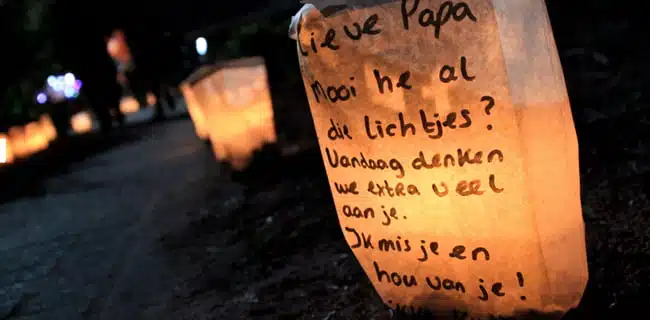 Lieve Papa
Mooi he al
die lichtjes?
Vandaag denken
we extra veel
aan je.
Ik mis je en
hou van je!